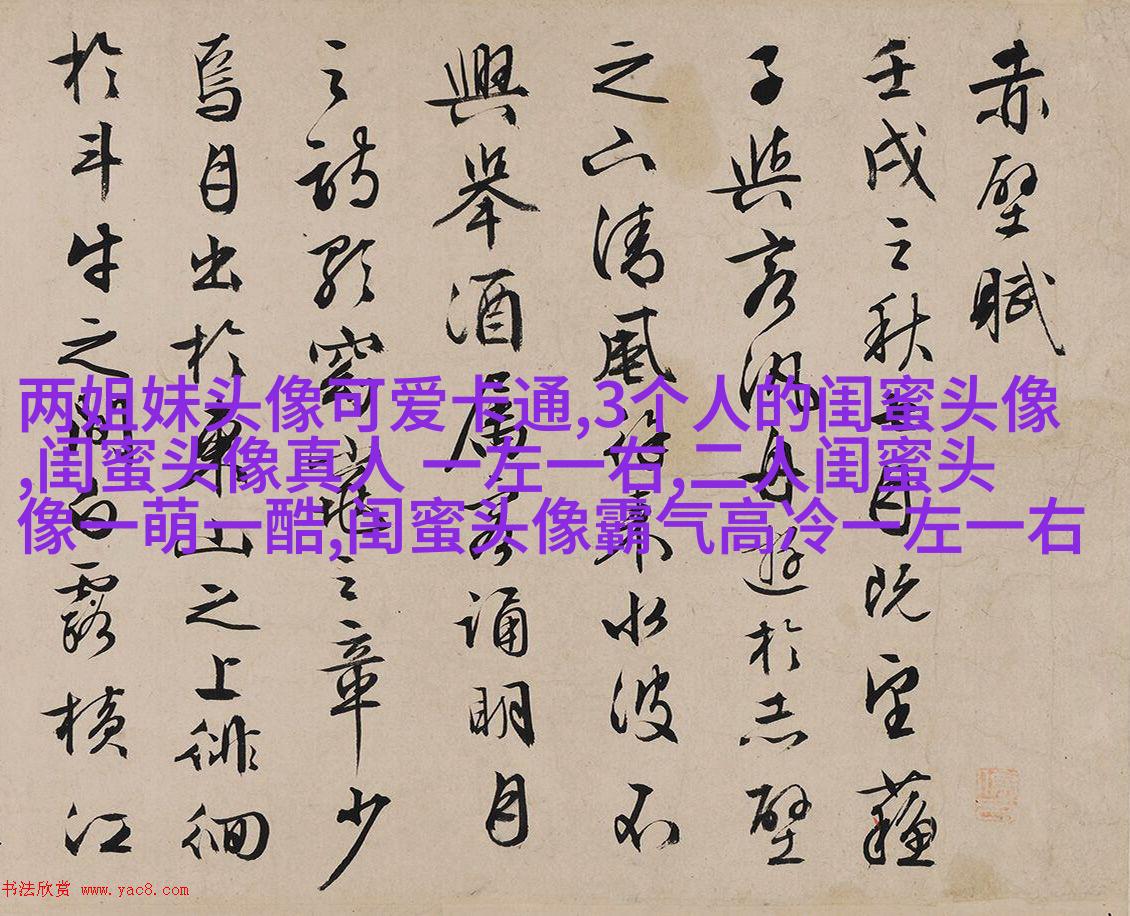 赤壁賦
壬戌之秋七月既望蘇
子與客汎舟遊於赤壁
之下清風徐來水波不
興舉酒屬客誦明月
之詩歌窈窕之章少
焉月出於東山之上徘徊
於斗牛之間白露橫江
两姐妹头像可爱卡通,3个人的闺蜜头像
,闺蜜头像真人 一左一右,二人闺蜜头
像一萌一酷,闺蜜头像霸气高冷一左一右
书法欣赏 www.yac8.com